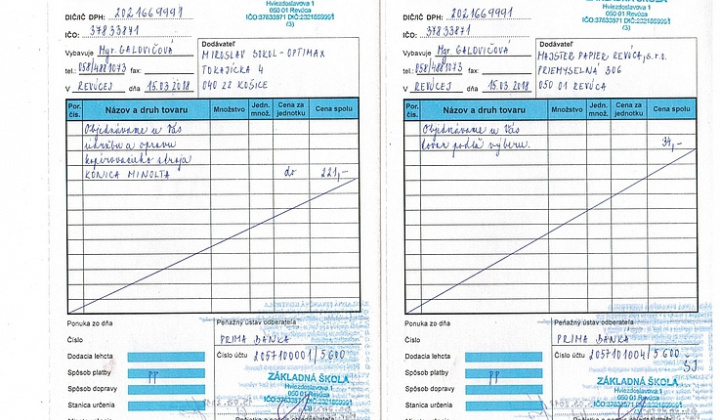 Hviezdoslavova 1
050 01 Revúca
IČO:37833871 DIČ:2021669991
/3/
DIČ/IČ DPH: 2021669991
IČO: 37833871
Vybavuje Mgr. GALOVIČOVÁ
tel.: 058/4881073 fax:
V REVÚCEJ dňa 15.03.2018
Dodávateľ
MIROSLAV SOKOL - OPTIMAX
TOKAJÍCKA 4
040 22 KOŠICE
Por. čís. Názov a druh tovaru Množstvo Jedn. množ. Cena za jednotku Cena spolu
Objednávame u Vás
údržbu a opravu
kopírovacieho stroja
KONICA MINOLTA do 221,-
Ponuka zo dňa
Číslo
Dodacia lehota
Spôsob platby PP
Spôsob dopravy
Stanica určenia
Peňažný ústav odberateľa
PRIMA BANKA
Číslo účtu 2057100001/5600
ZÁKLADNÁ ŠKOLA
Hviezdoslavova 1
050 01 Revúca
ZÁKLADNÁ ŠKOLA
Hviezdoslavova 1
050 01 Revúca
IČO:37833871 DIČ:2021669991
/3/
DIČ/IČ DPH: 2021669991
IČO: 37833871
Vybavuje Mgr. GALOVIČOVÁ
tel.: 058/4881073 fax:
V REVÚCEJ dňa 15.03.2018
Dodávateľ
MAJSTER PAPIER REVÚCA, s.r.o.
PRIEMYSELNÁ 306
050 01 REVÚCA
Por. čís. Názov a druh tovaru Množstvo Jedn. množ. Cena za jednotku Cena spolu
Objednávame u Vás
tovar podľa výberu. 34,-
Ponuka zo dňa
Číslo
Dodacia lehota
Spôsob platby PP
Spôsob dopravy
Stanica určenia
Peňažný ústav odberateľa
PRIMA BANKA
Číslo účtu 2057101004/5600
ZÁKLADNÁ ŠKOLA
Hviezdoslavova 1
050 01 Revúca